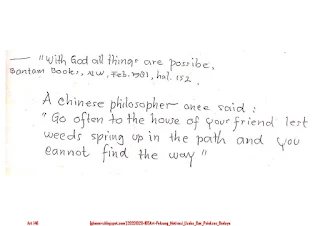 — "With God all things are possibe,
Bantam Books, NW, Feb. 1981, hal. 152.
A chinese philosopher once said :
" Go often to the house of your friend lest
weeds spring up in the path and you
cannot find the way "
Jul 148